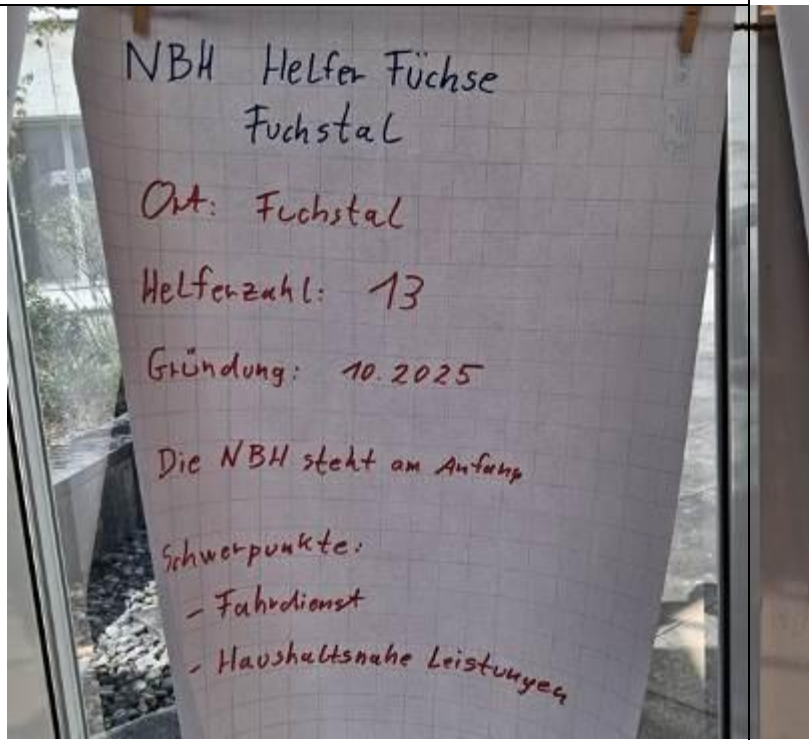 NBH Helfer Füchse
Fuchstal
Ort: Fuchstal
Helferzahl: 13
Gründung: 10.2025
Die NBH steht am Anfang
Schwerpunkte:
- Fahrdienst
- Haushaltsnahe Leistungen